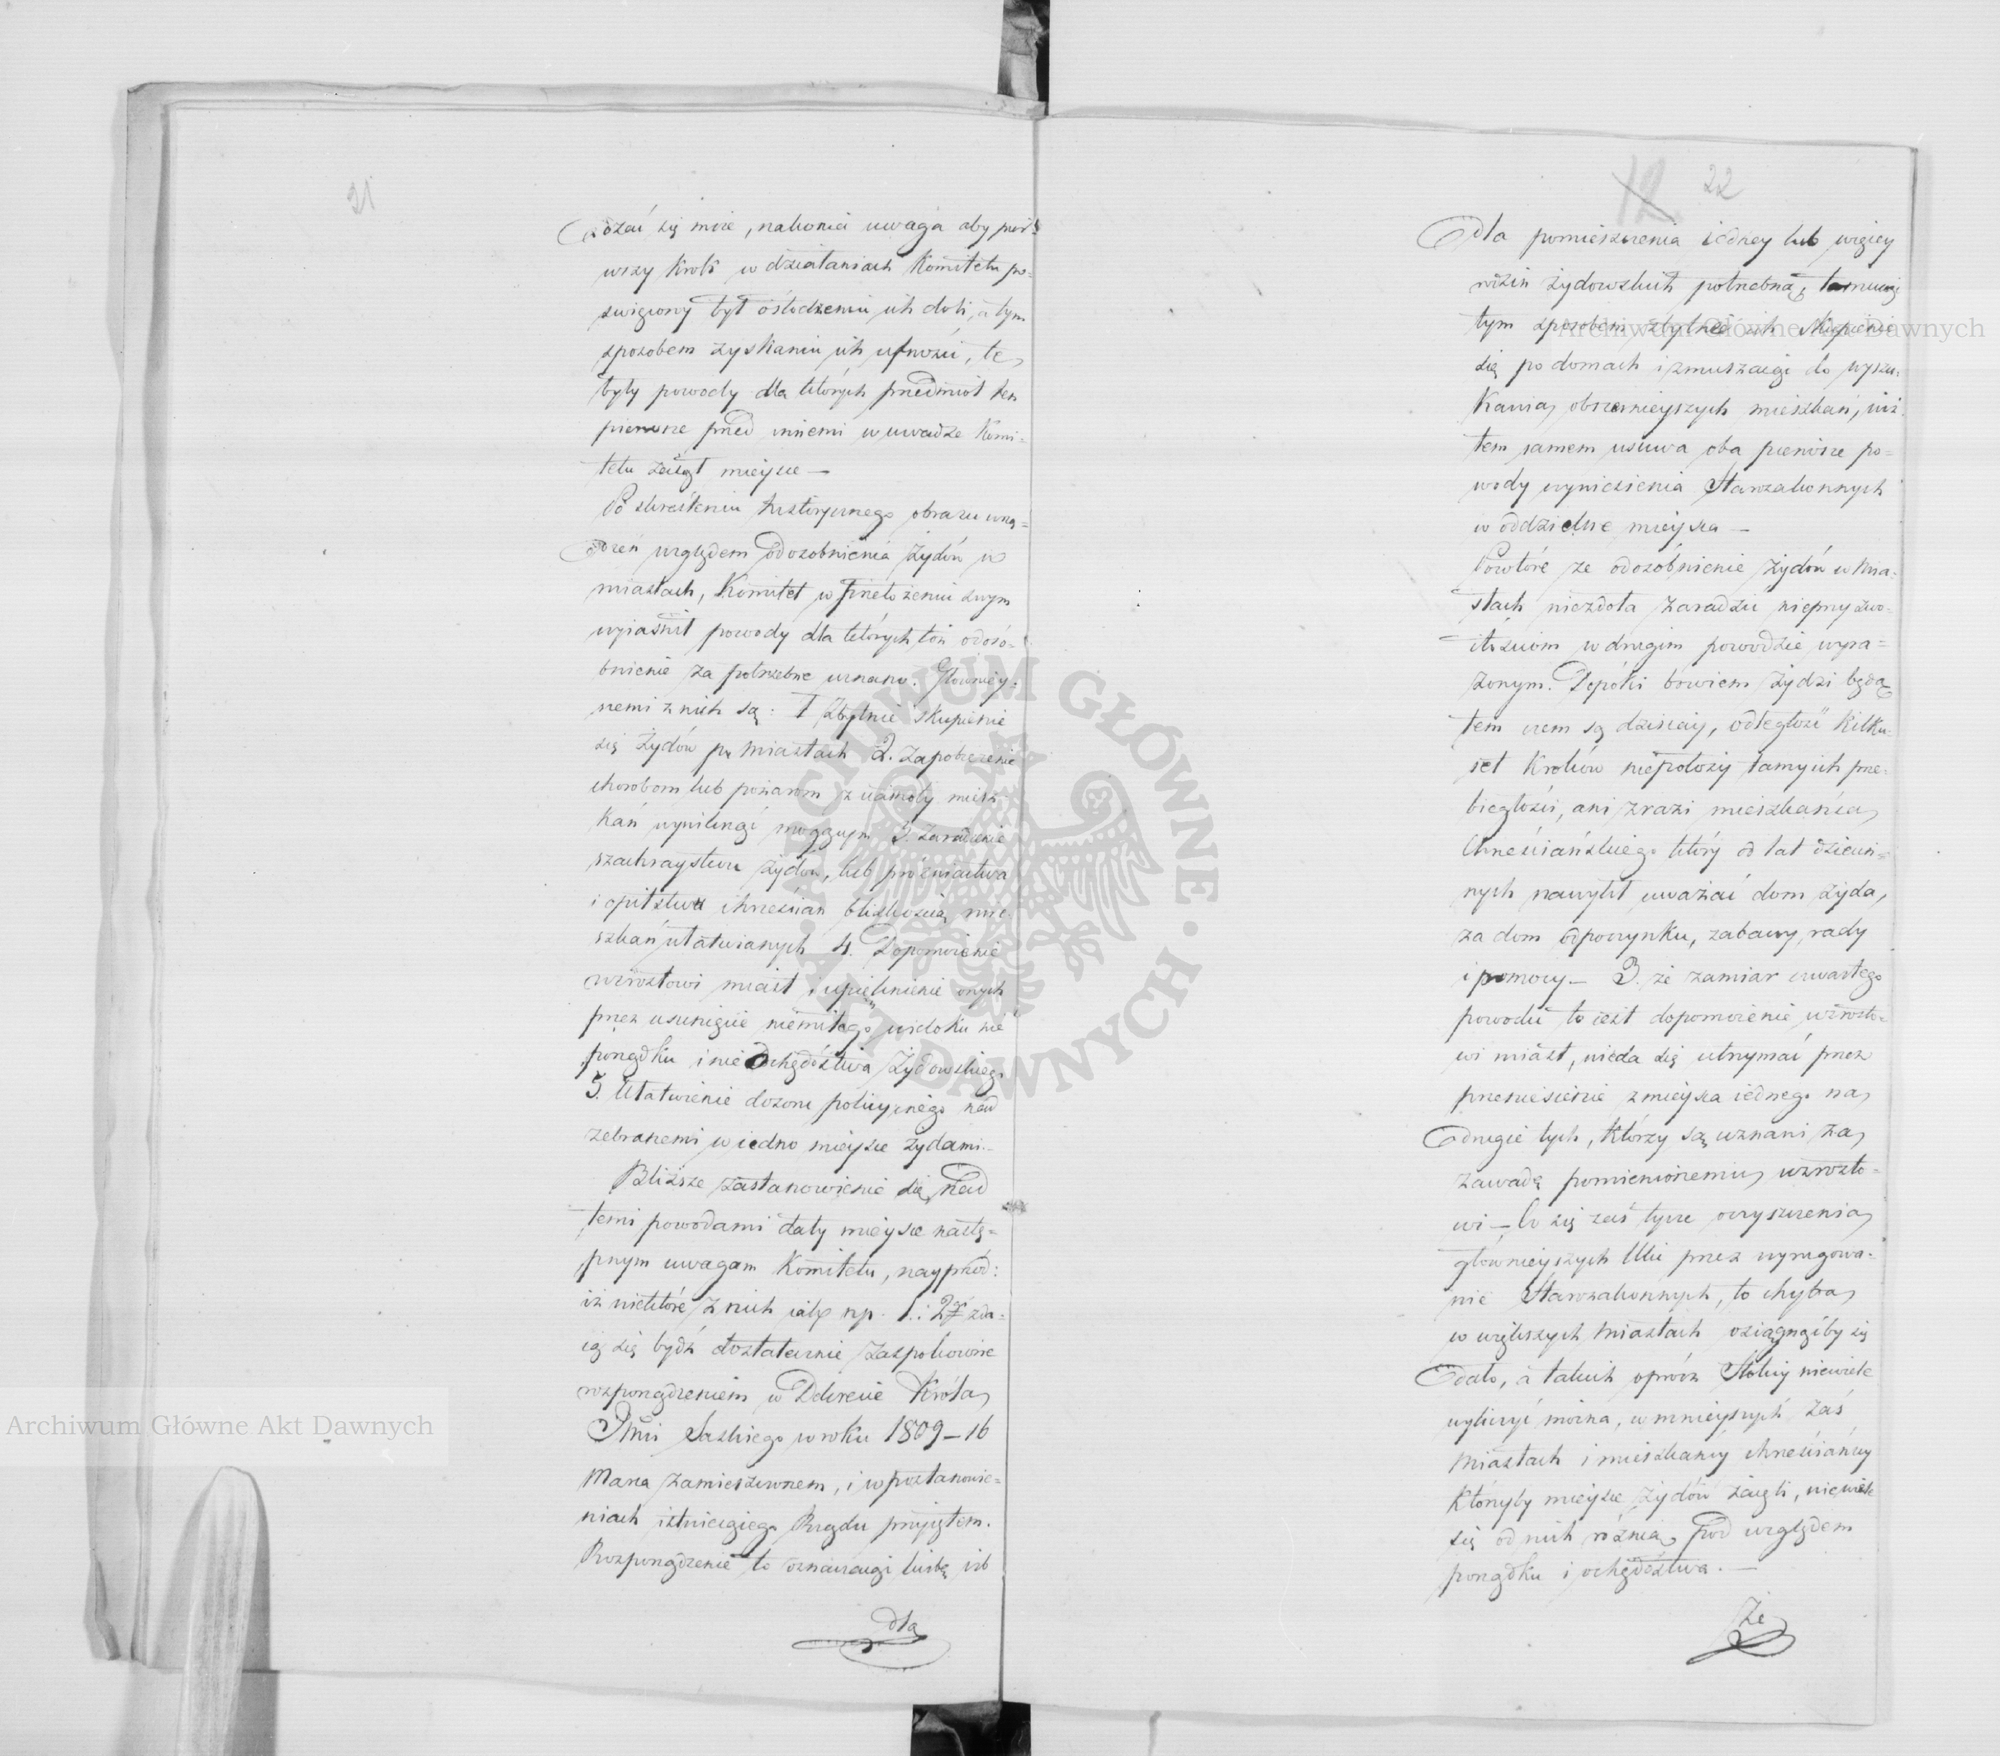 21
dzać się może, nakoniec uwaga aby pier=
wszy krok w działaniach Komitetu po=
święcony był osłodzeniu ich doli, a tym
sposobem zyskaniu ich ufności, te
były powody dla których przedmiot ten
pierwsze przed innemi w uwadze Komi=
tetu zaiął mieysce —
Po skreśleniu historycznego obrazu urzą=
dzeń względem odosobnienia Żydów w
miastach, Komitet w przełożeniu swym
wyiaśnił powody dla których toż odosó=
bnienie za potrzebne uznano. Głowniey=
szemi z nich są: 1 Zbytnie skupienie
się Żydów po miastach 2. Zapobieżenie
chorobom lub pożarom z ciasnoty miesz=
kań wyniknąć mogącym 3. Zaradzenie
szachraystwu żydów, lub próżniactwa
i opilstwu chrześcian bliskością mie=
szkań ułatwianych 4. Dopomożenie
wzrostowi miast i upięknienie onych
przez usunięcie niemiłego widoku nie
porządku i nieochędóstwa Żydowskiego
5. Ułatwienie dozoru policyinego nad
zebranemi w iedno mieysce żydami.—
Bliższe zastanowienie się nad
temi powodami dały mieysce nastę=
pnym uwagam Komitetu, nayprzód:
iż niektóre z nich iako np. 1.: 2 zda=
ią się bydź dostatecznie zaspokoione
rozporządzeniem w Dekrecie Króla
Saskiego w roku 1809 – 16
Marca zamieszczonem, i w postanowie=
niach istnieiącego Rządu przyiętem.
Rozporządzenie to oznaczaiąc liczbę izb
dla
12 22
dla pomieszczenia iedney lub więcey
rodzin żydowskich potrzebną, tamuiąc
tym sposobem zbytnie ich skupienie
się po domach i zmuszaiąc do wyszu=
kania obszernieyszych mieszkań, iuż
tem samem usuwa oba pierwsze po=
wody wyniesienia Starozakonnych
w oddzielne mieysca —
Powtóre że odosóbnienie Żydów w mia=
stach niezdoła zaradzić nieprzyzwo=
itościom w drugim powodzie wyra=
żonym. Dopóki bowiem Żydzi będą
tem czem są dzisiay, odległość kilku=
set kroków niepołoży tamy ich prze=
biegłości, ani zrazi mieszkańca
Chrześciańskiego który od lat dziecin=
nych nawykł uważać dom żyda,
za dom odpoczynku, zabawy, rady
i pomocy — 3. że zamiar czwartego
powodu to iest dopomożenie wzrosto=
wi miast, nieda się utrzymać przez
przeniesienie z mieysca iednego na
drugie tych, którzy są uznani za
zawadę pomienionemu wzrosto=
wi — Co się zaś tycze oczyszczenia
głównieyszych Ulic przez wyrugowa=
nie Starozakonnych, to chyba
w większych miastach osiągnąćby się
dało, a takich oprócz Stolicy niewiele
wyliczyć można, w mnieyszych zaś
miastach i mieszkańcy chrześciańscy
którzyby mieysce żydów zaięli, niewiele
się od nich różnią pod względem
porządku i ochędóstwa. —
Że
Archiwum Główne Akt Dawnych
Archiwum Główne Akt Dawnych
ARCHIWUM GŁÓWNE · AKT DAWNYCH ·